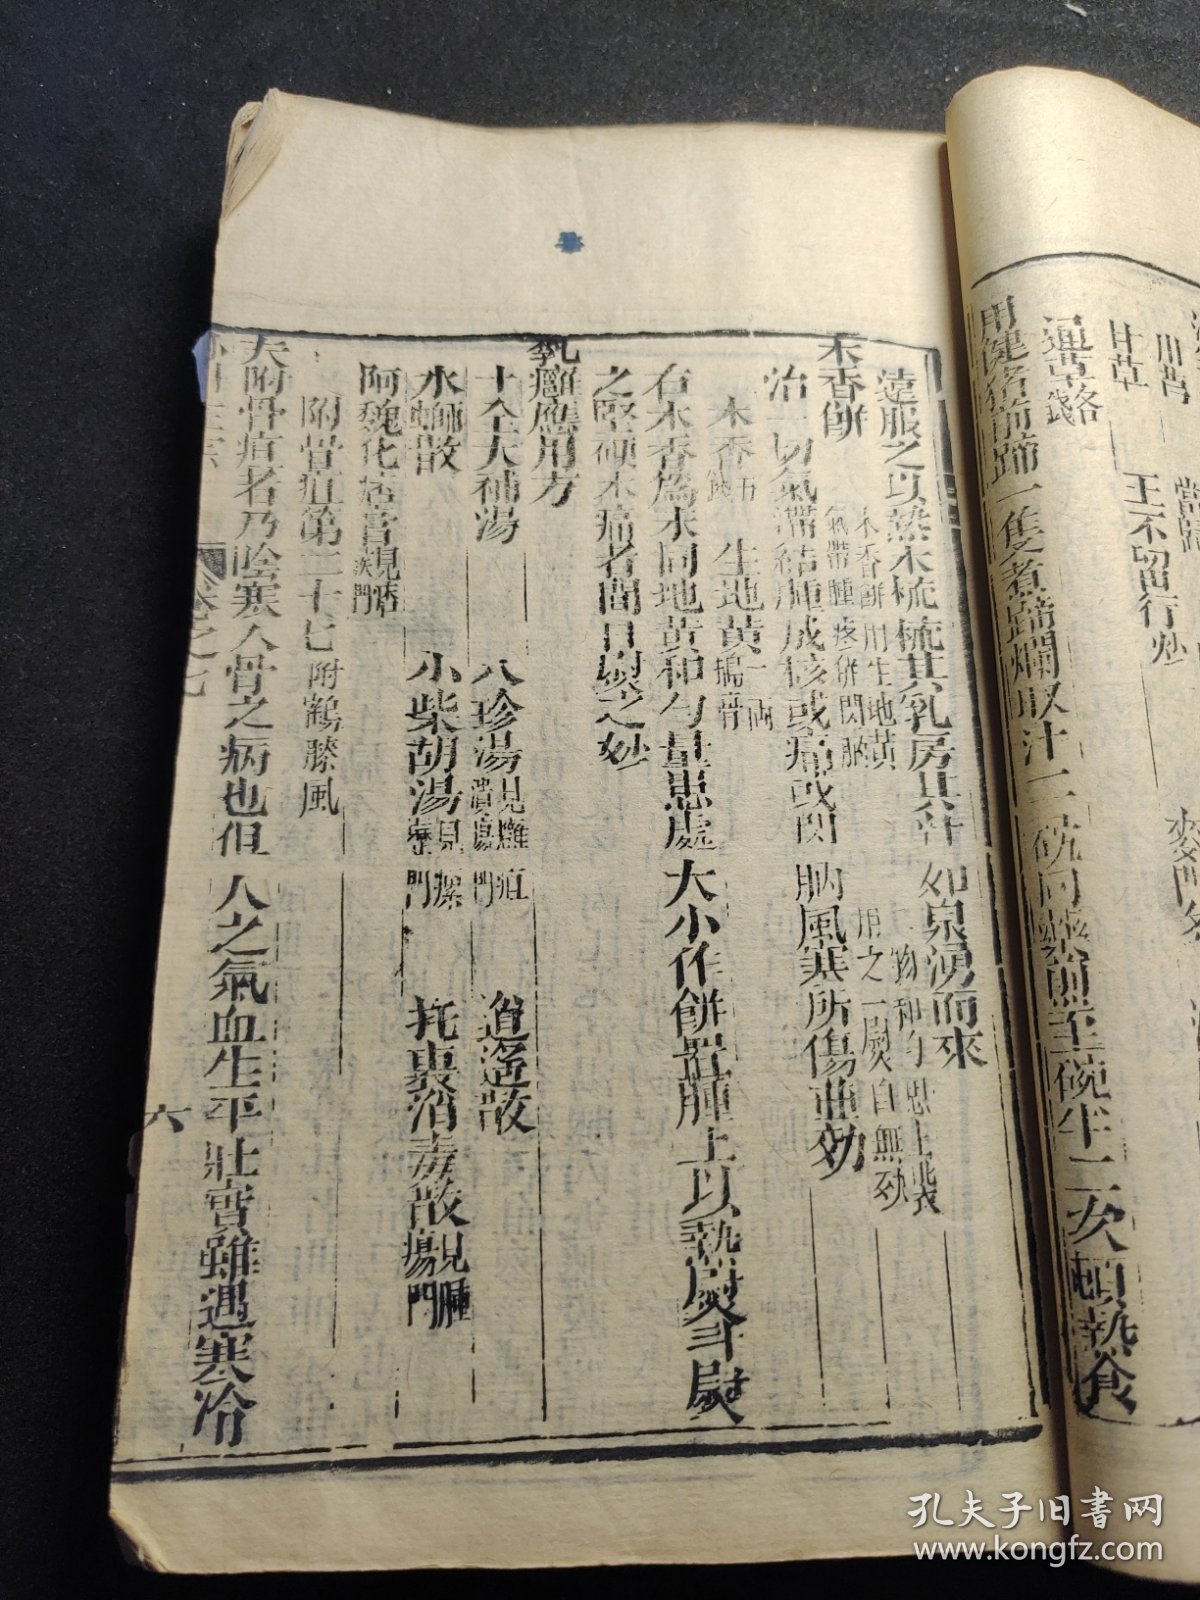 川芎
當歸
甘草
王不留行炒
通草各錢
用健豬前蹄一隻煮蹄爛取汁二碗同藥煎至碗半二次頓熱食
遠服之以熱木梳梳其乳房其汁如泉湧而來
木香餅
木香餅用生地黃二物和勻患上裝
氣滯腫疼併閃肭用之一熨自無효
治一切氣滯結腫成核或痛或閃肭風寒所傷並効
木香五錢
生地黃一兩搗膏
右木香為末同地黃和勻量患處大小作餅置腫上以熱熨斗熨
之堅硬木痛者間日熨之妙
乳癰應用方
十全大補湯
八珍湯見癰疽潰瘍門
逍遙散
水螄散
小柴胡湯見瘰癧門
托裏消毒散見腫瘍門
阿魏化痞膏見痞疾門
附骨疽第二十七附鶴膝風
夫附骨疽者乃陰寒入骨之病也但人之氣血生平壯實雖遇寒冷
卷之七
六
孔夫子旧书网
www.kongfz.com